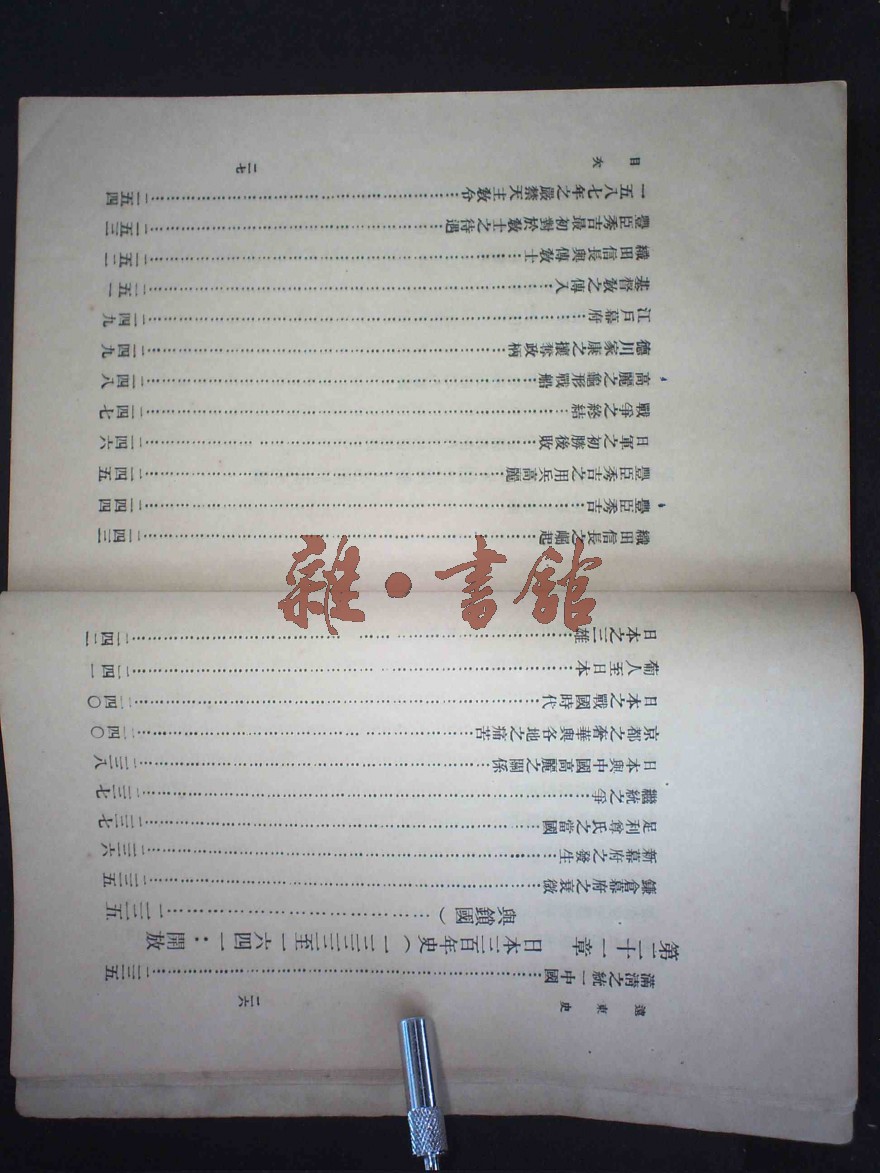 遠東史
二六
滿清之統一中國……………………二三五
第二十一章 日本三百年史(一三三三至一六四一:開放
與鎖國)……………………二三五
鎌倉幕府之衰微……………………二三五
新幕府之發生……………………二三六
足利尊氏之當國……………………二三七
繼統之爭……………………二三七
日本與中國高麗之關係……………………二三八
京都之奢華與各地之痛苦……………………二四〇
日本之戰國時代……………………二四〇
葡人至日本……………………二四一
日本之三雄……………………二四二
織田信長之崛起……………………二四三
豐臣秀吉……………………二四四
豐臣秀吉之用兵高麗……………………二四五
日軍之初勝後敗……………………二四六
戰爭之終結……………………二四七
高麗之龜形戰船……………………二四八
德川家康之攘奪政柄……………………二四九
江戶幕府……………………二四九
基督教之傳入……………………二五一
織田信長與傳教士……………………二五二
豐臣秀吉最初對於教士之待遇……………………二五三
一五八七年之嚴禁天主教令……………………二五四
目次
二七
雜·書館